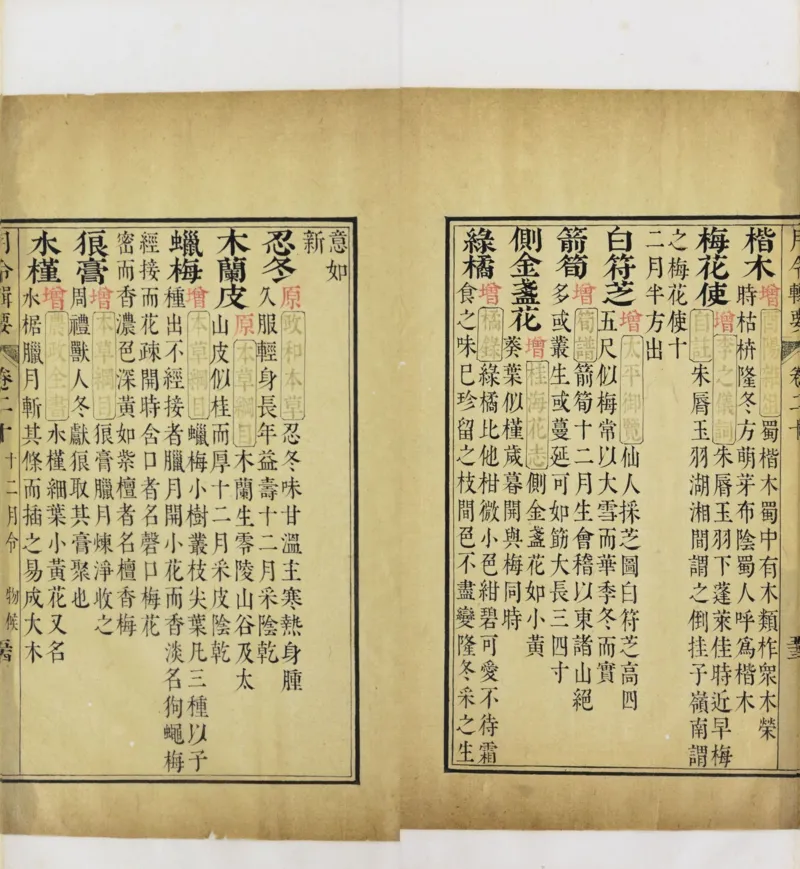 月令輯要 卷二十
楷木 增 蜀楷木蜀中有木類柞衆木榮
時枯枿隆冬方萌芽布陰蜀人呼爲楷木
梅花使 增 李之儀詞 朱脣玉羽下蓬萊佳時近早梅
朱脣玉羽湖湘間謂之倒挂子嶺南謂
之梅花使十
二月半方出
白符芝 增 太平御覽 仙人採芝圖白符芝高四
五尺似梅常以大雪而華季冬而實
箭筍 增 筍譜 箭筍十二月生會稽以東諸山絕
多或叢生或蔓延可如筯大長三四寸
側金盞花 增 桂海花志 側金盞花如小黃
葵葉似槿歲暮開與梅同時
綠橘 增 橘錄 綠橘比他柑微小色紺碧可愛不待霜
食之味已珍留之枝間色不盡變隆冬采之生
意如
新
忍冬 原 政和本草 忍冬味甘溫主寒熱身腫
久服輕身長年益壽十二月采陰乾
木蘭皮 原 本草綱目 木蘭生零陵山谷及太
山皮似桂而厚十二月采皮陰乾
蠟梅 增 本草綱目 蠟梅小樹叢枝尖葉凡三種以子
種出不經接者臘月開小花而香淡名狗蠅梅
經接而花疎開時含口者名磬口梅花
密而香濃色深黃如紫檀者名檀香梅
狼膏 增 本草綱目 狼膏臘月煉淨收之
周禮獸人冬獻狼取其膏聚也
水槿 增 農政全書 水槿細葉小黃花又名
水椐臘月斬其條而插之易成大木
月令輯要 卷二十 十二月令 物候